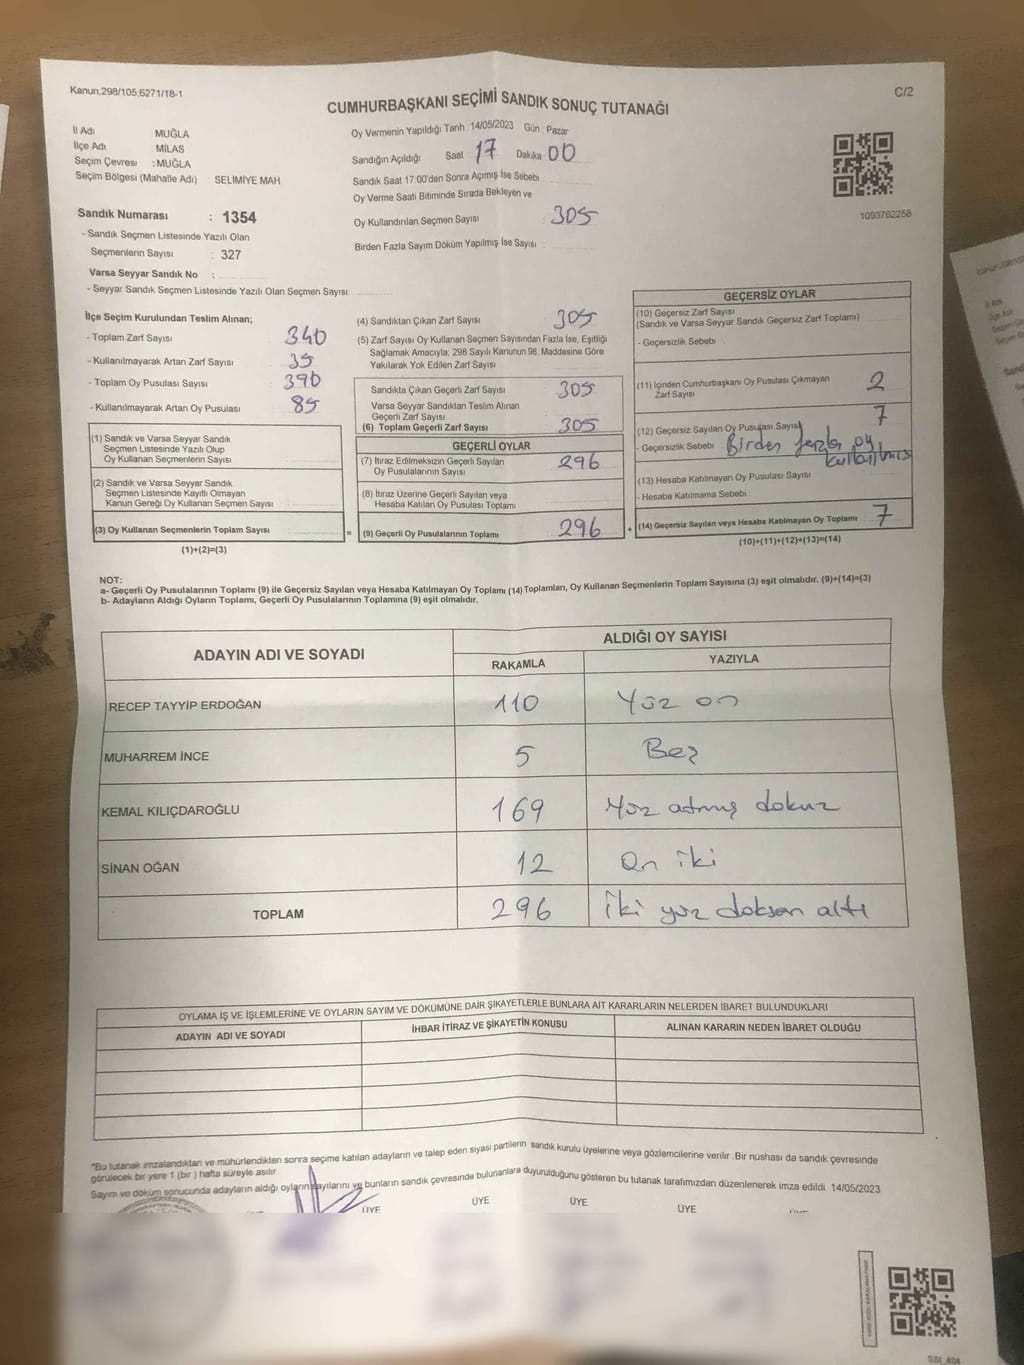 Kanun,298/105,6271/18-1
C/2
CUMHURBAŞKANI SEÇİMİ SANDIK SONUÇ TUTANAĞI
İl Adı MUĞLA
İlçe Adı MİLAS
Seçim Çevresi :MUĞLA
Seçim Bölgesi (Mahalle Adı) SELIMIYE MAH
Sandık Numarası : 1354
- Sandık Seçmen Listesinde Yazılı Olan
Seçmenlerin Sayısı : 327
Varsa Seyyar Sandık No :
- Seyyar Sandık Seçmen Listesinde Yazılı Olan Seçmen Sayısı:
Oy Vermenin Yapıldığı Tarih 14/05/2023 Gün Pazar
Sandığın Açıldığı Saat 17 Dakika 00
Sandık Saat 17:00'den Sonra Açımış İse Sebebi
Oy Verme Saati Bitiminde Sırada Bekleyen ve
Oy Kullandırılan Seçmen Sayısı : 305
Birden Fazla Sayım Döküm Yapılmış İse Sayısı :
1093762258
İlçe Seçim Kurulundan Teslim Alınan;
- Toplam Zarf Sayısı 340
- Kullanılmayarak Artan Zarf Sayısı 35
- Toplam Oy Pusulası Sayısı 390
- Kullanılmayarak Artan Oy Pusulası 85
(1) Sandık ve Varsa Seyyar Sandık
Seçmen Listesinde Yazılı Olup
Oy Kullanan Seçmenlerin Sayısı
(2) Sandık ve Varsa Seyyar Sandık
Seçmen Listesinde Kayıtlı Olmayan
Kanun Gereği Oy Kullanan Seçmen Sayısı
(3) Oy Kullanan Seçmenlerin Toplam Sayısı =
(1)+(2)=(3)
(4) Sandıktan Çıkan Zarf Sayısı 305
(5) Zarf Sayısı Oy Kullanan Seçmen Sayısından Fazla İse, Eşitliği
Sağlamak Amacıyla; 298 Sayılı Kanunun 98. Maddesine Göre
Yakılarak Yok Edilen Zarf Sayısı
Sandıkta Çıkan Geçerli Zarf Sayısı 305
Varsa Seyyar Sandıktan Teslim Alınan
Geçerli Zarf Sayısı
(6) Toplam Geçerli Zarf Sayısı 305
GEÇERLİ OYLAR
(7) İtiraz Edilmeksizin Geçerli Sayılan
Oy Pusulalarının Sayısı 296
(8) İtiraz Üzerine Geçerli Sayılan veya
Hesaba Katılan Oy Pusulası Toplamı
(9) Geçerli Oy Pusulalarının Toplamı 296 +
GEÇERSİZ OYLAR
(10) Geçersiz Zarf Sayısı
(Sandık ve Varsa Seyyar Sandık Geçersiz Zarf Toplamı)
- Geçersizlik Sebebi
(11) İçinden Cumhurbaşkanı Oy Pusulası Çıkmayan
Zarf Sayısı 2
(12) Geçersiz Sayılan Oy Pusulası Sayısı 7
- Geçersizlik Sebebi Birden fazla oy
kullanılmış
(13) Hesaba Katılmayan Oy Pusulası Sayısı
- Hesaba Katılmama Sebebi
(14) Geçersiz Sayılan veya Hesaba Katılmayan Oy Toplamı 7
(10)+(11)+(12)+(13)=(14)
NOT:
a- Geçerli Oy Pusulalarının Toplamı (9) ile Geçersiz Sayılan veya Hesaba Katılmayan Oy Toplamı (14) Toplamları, Oy Kullanan Seçmenlerin Toplam Sayısına (3) eşit olmalıdır. (9)+(14)=(3)
b- Adayların Aldığı Oyların Toplamı, Geçerli Oy Pusulalarının Toplamına (9) eşit olmalıdır.
ADAYIN ADI VE SOYADI ALDIĞI OY SAYISI
RAKAMLA YAZIYLA
RECEP TAYYİP ERDOĞAN 110 Yüz on
MUHARREM İNCE 5 Beş
KEMAL KILIÇDAROĞLU 169 Yüz atmış dokuz
SİNAN OĞAN 12 On iki
TOPLAM 296 İki yüz doksan altı
OYLAMA İŞ VE İŞLEMLERİNE VE OYLARIN SAYIM VE DÖKÜMÜNE DAİR ŞİKAYETLERLE BUNLARA AİT KARARLARIN NELERDEN İBARET BULUNDUKLARI
ADAYIN ADI VE SOYADI İHBAR İTİRAZ VE ŞİKAYETİN KONUSU ALINAN KARARIN NEDEN İBARET OLDUĞU
*Bu tutanak imzalandıktan ve mühürlendikten sonra seçime katılan adayların ve talep eden siyasi partilerin sandık kurulu üyelerine veya gözlemcilerine verilir. Bir nüshası da sandık çevresinde
görülecek bir yere 1 (bir ) hafta süreyle asılır.
Sayım ve döküm sonucunda adayların aldığı oyların sayılarını ve bunların sandık çevresinde bulunanlara duyurulduğunu gösteren bu tutanak tarafımızdan düzenlenerek imza edildi 14/05/2023
ÜYE ÜYE ÜYE ÜYE